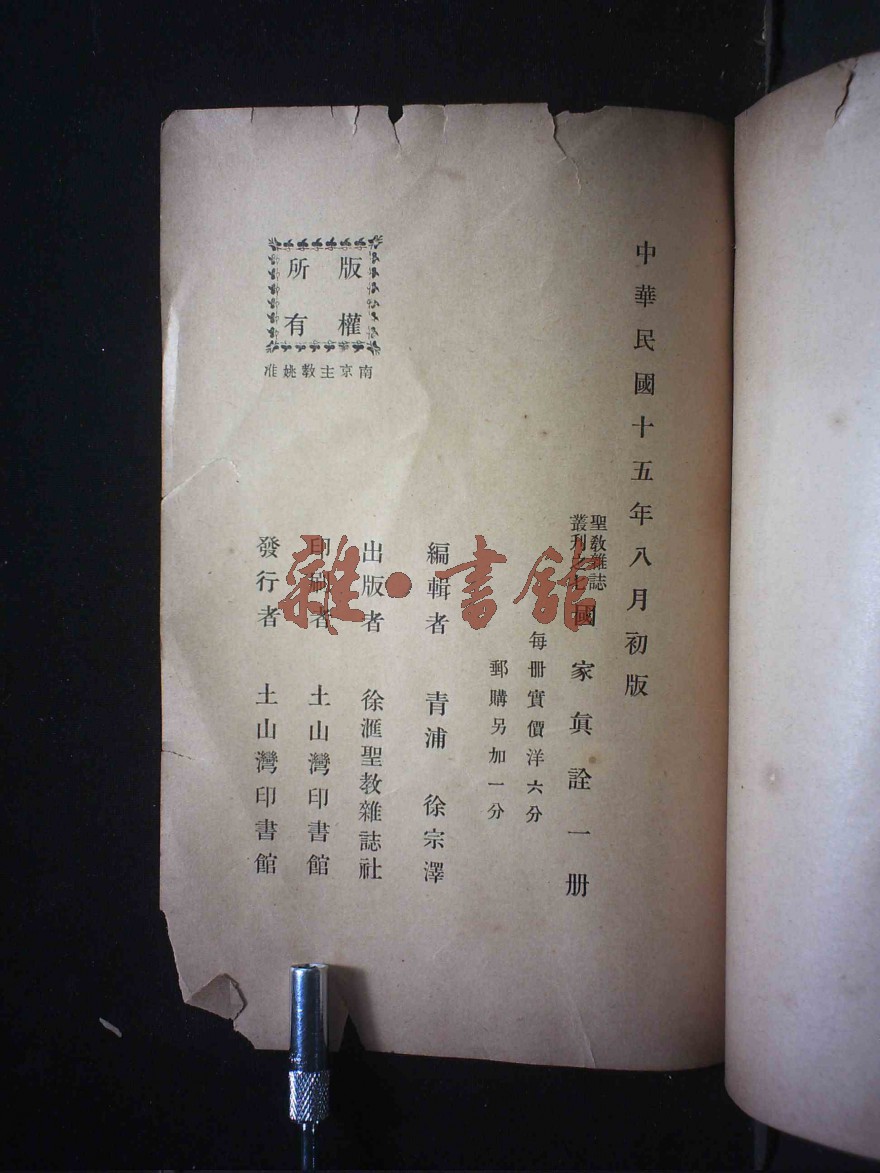 中華民國十五年八月初版
聖敎雜誌
叢刊之七
國家眞詮一册
每册實價洋六分
郵購另加一分
編輯者 青浦 徐宗澤
出版者 徐滙聖敎雜誌社
印刷者 土山灣印書館
發行者 土山灣印書館
版權
所有
南京主敎姚准
雜·書館